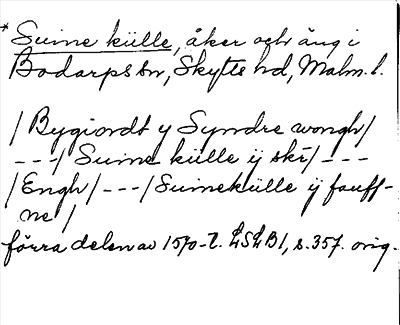 * Suine külle, åker och äng i
Bodarps sn, Skytts hd, Malm. l.
/ Bygiordt y Syndre wongh /
---/ Suine külle ÿ skr /---
/ Engh / ---/ Suinekülle ÿ fauff-
ne /
förra delen av 1570-t. LSLB1, s. 357. orig.